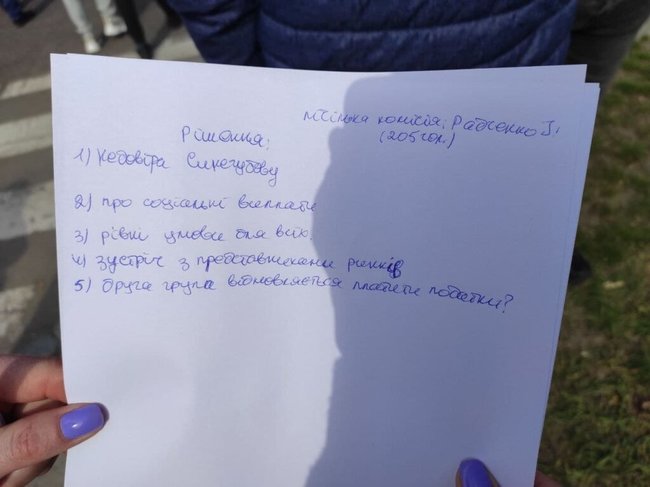 лічильна комісія: Радченко І.
(205 чол.)
Рішення:
1) Недовіра Синєгубову
2) про соціальні виплати
3) рівні умови для всіх.
4) зустріч з представниками ринків
5) друга група відмовляється платити податки?